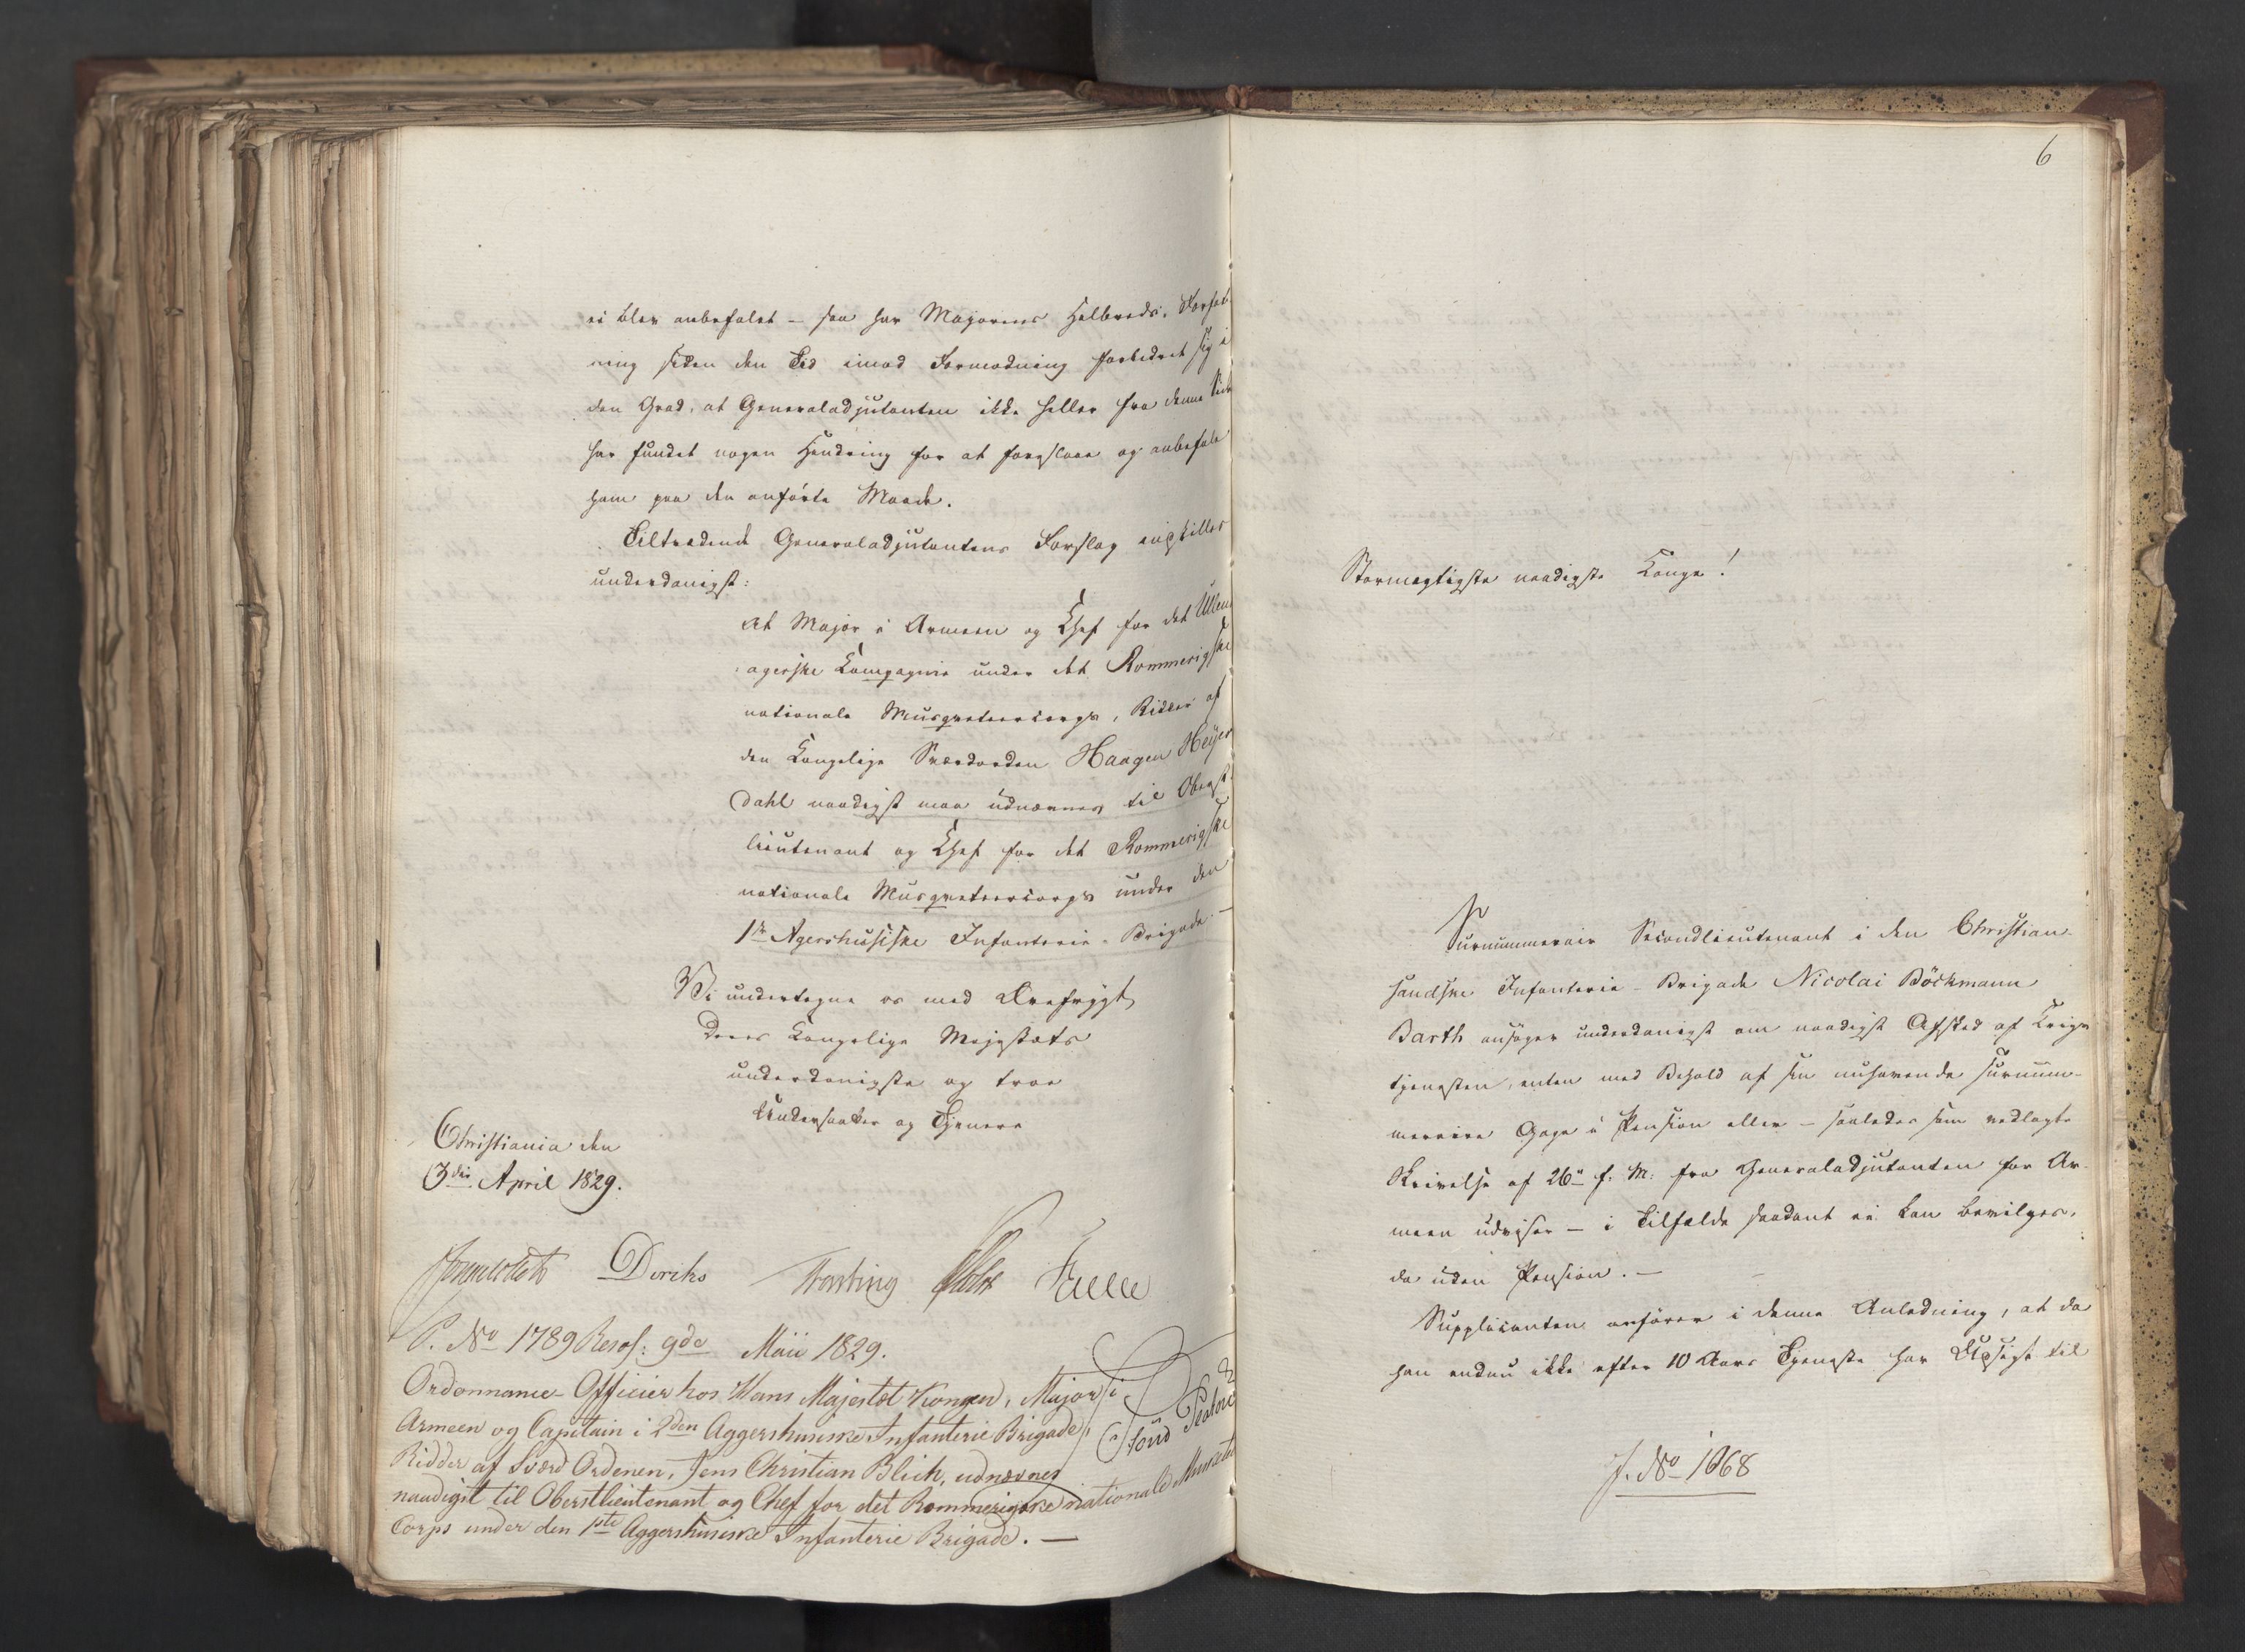 ei blev anbefalet – saa har Majorens Helbreds-Forfat-
ning siden den Tid imod Formodning forbedret sig i
den Grad, at Generaladjutanten ikke heller fra denne Side
har fundet nogen Hindring for at foreslaae og anbefale
ham paa den anførte Maade.
Tiltrædende Generaladjutantens Forslag indstilles
underdanigst:
At Major i Armeen og Chef for det Ullens-
agerske Compagnie under det Rommerigske
nationale Musqueteercorps, Ridder af
den Kongelige Sværdorden Haagen Heÿer-
dahl naadigst maa udnævnes til Oberst-
lieutenant og Chef for det Rommerigske
nationale Musqueteercorps under den
1ste Agershusiske Infanterie-Brigade. –
Vi undertegne os med Ærefrygt
Deres Kongelige Majestæts
underdanigste og troe
Undersaatter og Tjenere
Christiania den
3die April 1829.
Diriks Fasting Falk
P. No 1789 Resol: 9de Maii 1829.
Ordonnance-Officier hos Hans Majestæt Kongen, Major i
Armeen og Capitain i 2den Aggershusiske Infanterie Brigade,
Ridder af Sværd Ordenen, Jens Christian Blich, udnævnes
naadigst til Oberstlieutenant og Chef for det Rommerigske nationale
Corps under den 1ste Aggershusiske Infanterie Brigade. –
6
Stormægtigste naadigste Konge!
Surnummerair Secondlieutenant i den Christian-
sandske Infanterie-Brigade Nicolai Böckmann
Barth ansøger underdanigst om naadigst Afsked af Krigs-
tjenesten, enten med Behold af sin nuhavende surnum-
meraire Gage i Pension eller – saaledes som vedlagte
Skrivelse af 26de f. M. fra Generaladjutanten for Ar-
meen udviser – i Tilfælde saadant ei kan bevilges,
da uden Pension. –
Supplicanten anfører i denne Anledning, at da
han endnu ikke efter 10 Aars Tjeneste har Udsigt til
J. No 1068